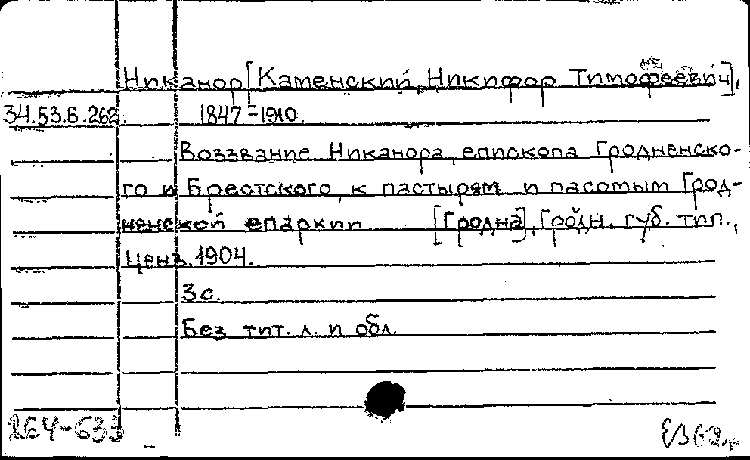 Никанор [Каменский, Никифор Тимофеевич],
34.53.6.262. 1847-1910.
Воззвание Никанора, епископа Гродненско-
го и Брестского, к пастырям и пасомым Грод-
ненской епархии [Гродна], Гродн. губ. тип.,
Ценз. 1904.
3 с.
Без тит. л. и обл.
264-633